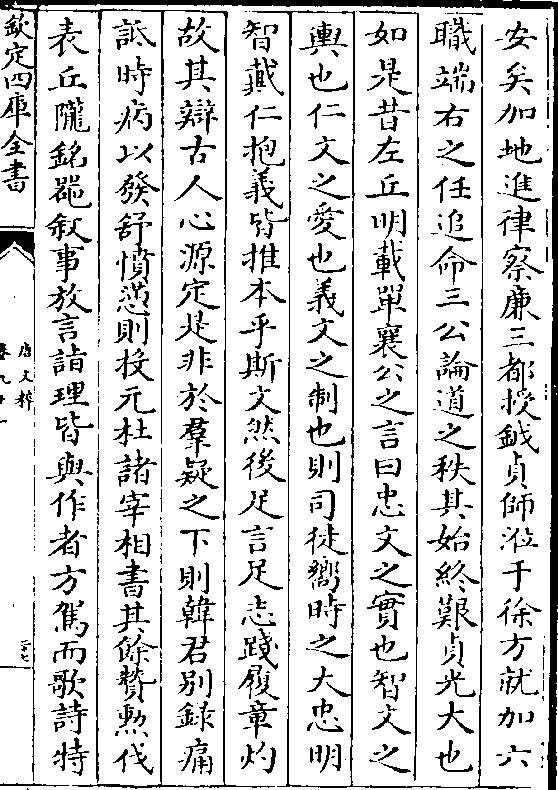 安矣加地進律察廉三都授鉞貞師涖于徐方就加六
職端右之任追命三公論道之秩其始終艱貞光大也
如是昔左丘明載單襄公之言曰忠文之實也智文之
輿也仁文之愛也義文之制也則司徒嚮時之大忠明
智藏仁抱義皆推本乎斯文然後足言足志踐履章灼
故其辯古人心源定是非於羣疑之下則韓君别録痛
詆時病以發舒憤懣則投元杜諸宰相書其餘贊勲伐
表丘隴銘器叙事放言詣理皆與作者方駕而歌詩特
欽定四庫全書
唐文粹
卷九十一
二十七